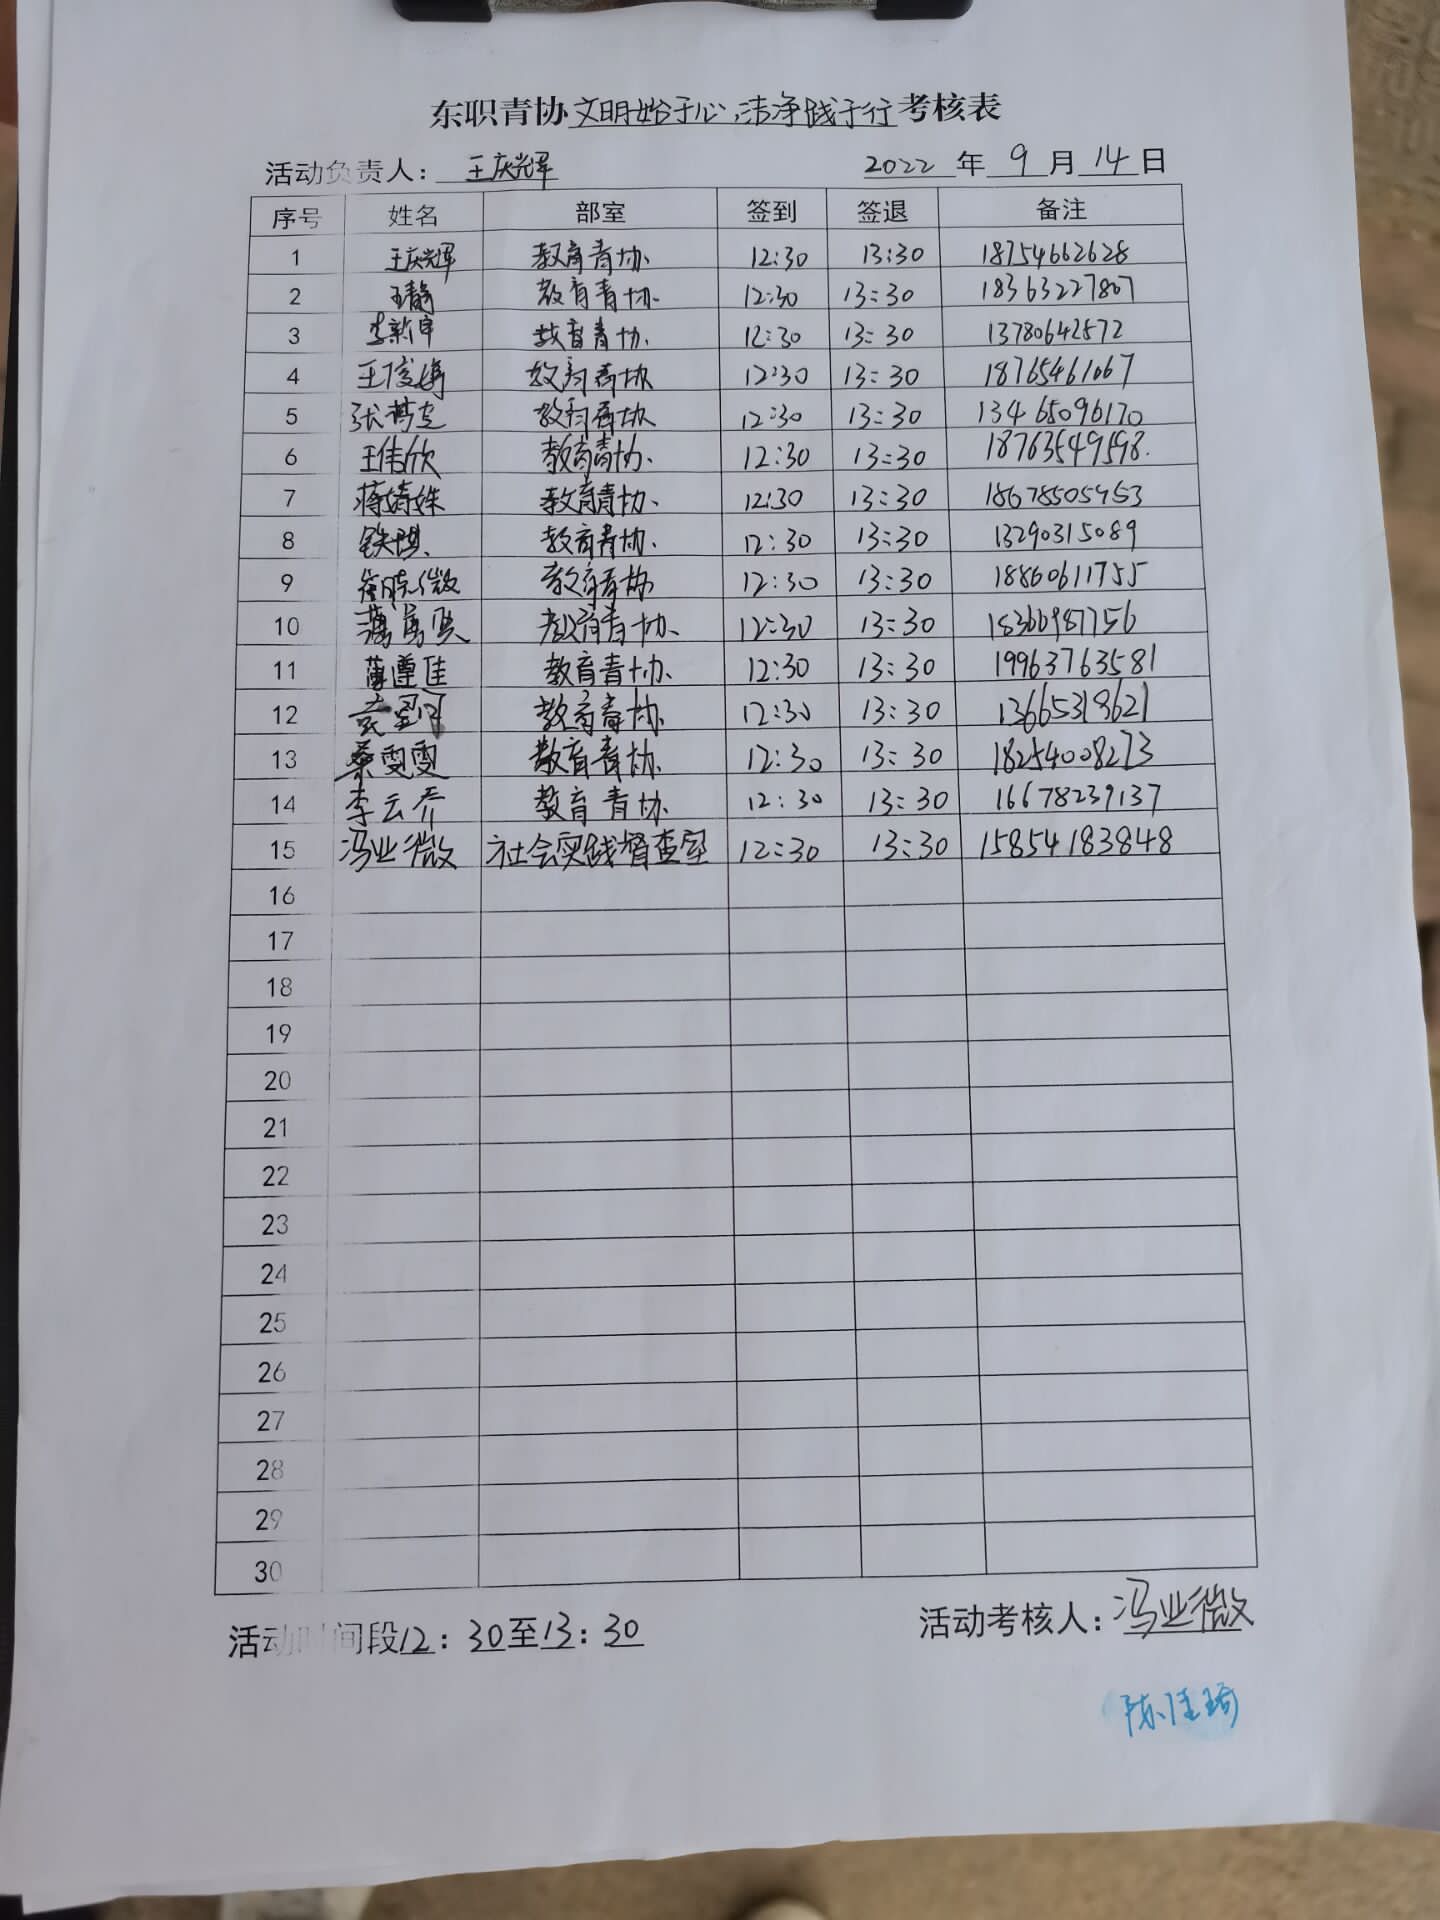 东职青协文明始于心,洁净践于行考核表
活动负责人: 王庆辉 2022 年 9 月 14 日
序号 姓名 部室 签到 签退 备注
1 王庆辉 教育青协. 12:30 13:30 18754662628
2 王静 教育青协. 12:30 13:30 18363227807
3 李新宇 教育青协. 12:30 13:30 13780642572
4 王俊婷 教育青协 12:30 13:30 18765461067
5 教育青协 12:30 13:30 13465096170
6 王伟欣 教育青协. 12:30 13:30 18763549598.
7 蒋婧姝 教育青协. 12:30 13:30 18678505453
8 铁琪 教育青协. 12:30 13:30 13290315089
9 崔晓微 教育青协 12:30 13:30 18860611755
10 教育青协. 12:30 13:30 18366987756
11 薄遵佳 教育青协. 12:30 13:30 19963763581
12 教育青协. 12:30 13:30 13665319621
13 桑雯雯 教育青协. 12:30 13:30 18254008273
14 李云乔 教育青协 12:30 13:30 16678239137
15 冯业微 社会实践督查室 12:30 13:30 15854183848
16
17
18
19
20
21
22
23
24
25
26
27
28
29
30
活动时间段12:30至13:30 活动考核人:冯业微
陈佳琦